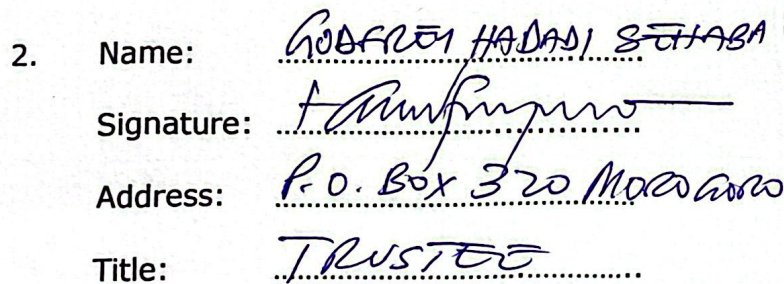 2. Name: GODFREY HADADI SEHABA
Signature:
Address: P.O. BOX 320 MOROGORO
Title: TRUSTEE